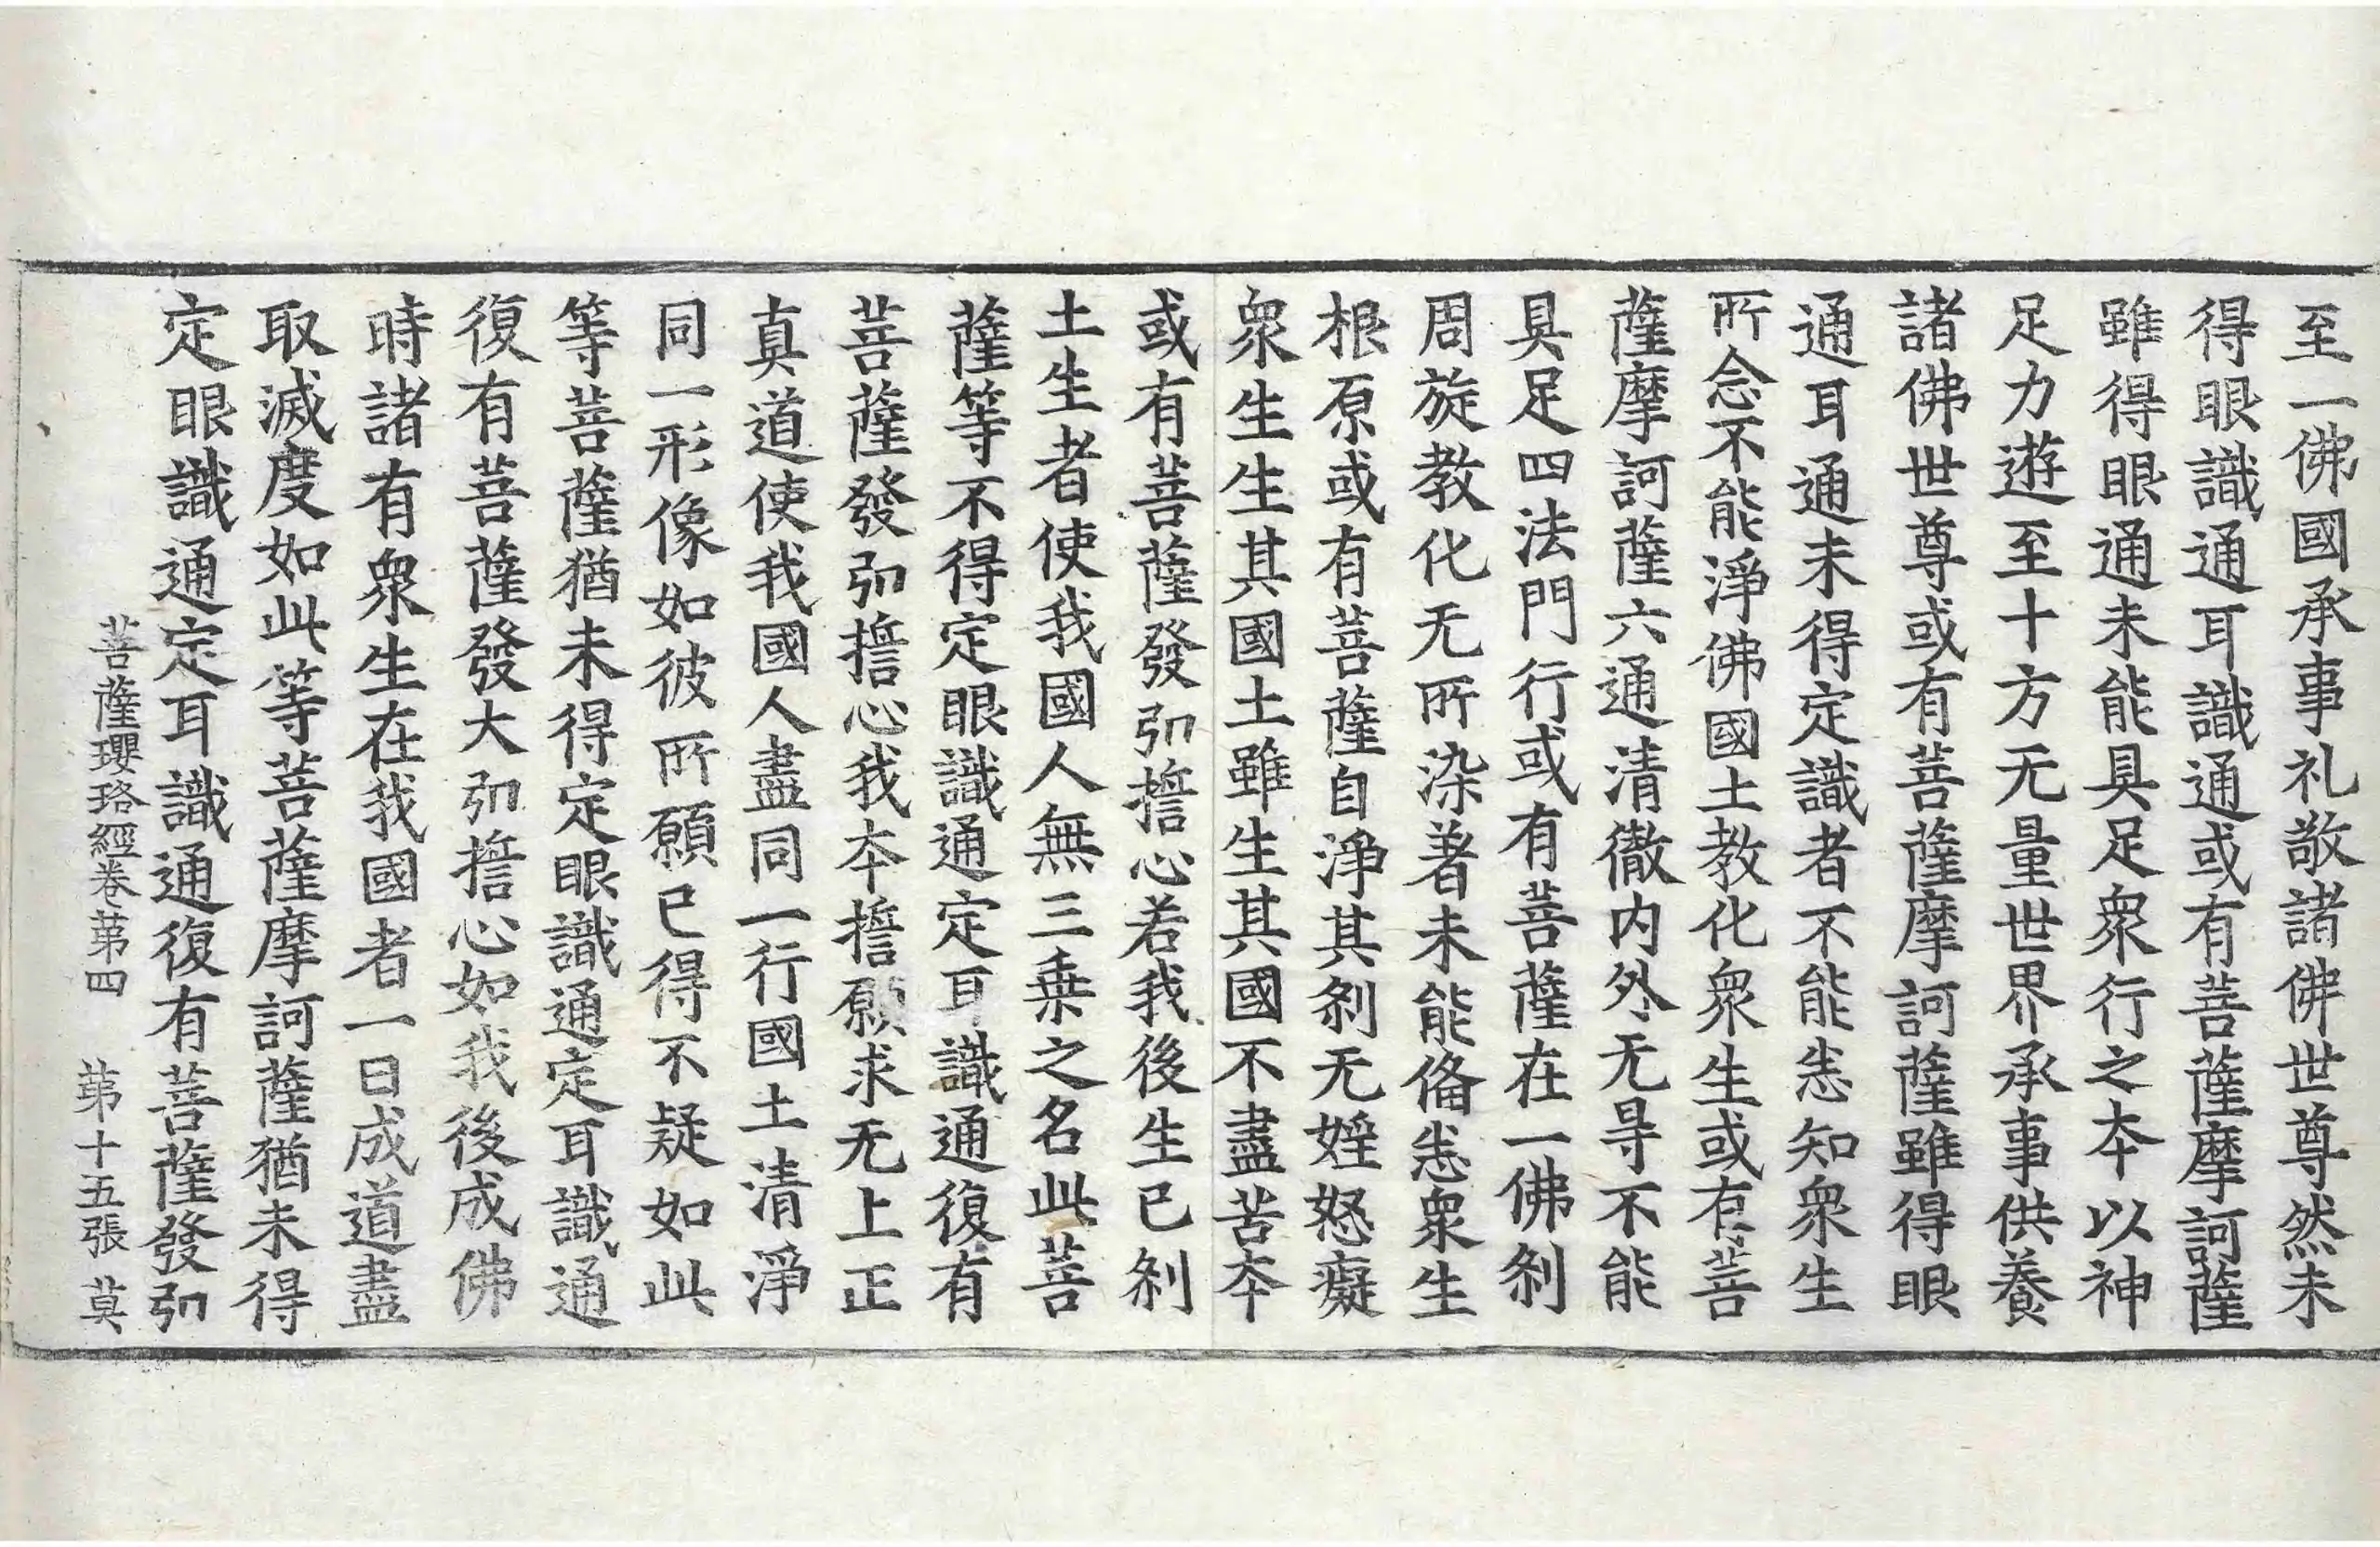 至一佛國承事礼敬諸佛世尊然未
得眼識通耳識通或有菩薩摩訶薩
雖得眼通未能具足衆行之夲以神
足力遊至十方无量世界承事供養
諸佛世尊或有菩薩摩訶薩雖得眼
通耳通未得定識者不能悉知衆生
所念不能淨佛國土教化衆生或有菩
薩摩訶薩六通清徹内外无㝵不能
具足四法門行或有菩薩在一佛刹
周旋教化无所染著未能俻悉衆生
根原或有菩薩自淨其刹无婬怒癡
衆生生其國土雖生其國不盡苦夲
或有菩薩發弘誓心若我後生已刹
土生者使我國人無三乗之名此菩
薩等不得定眼識通定耳識通復有
菩薩發弘誓心我夲誓願求无上正
真道使我國人盡同一行國土清淨
同一形像如彼所願已得不疑如此
等菩薩猶未得定眼識通定耳識通
復有菩薩發大弘誓心如我後成佛
時諸有衆生在我國者一日成道盡
取滅度如此等菩薩摩訶薩猶未得
定眼識通定耳識通復有菩薩發弘
菩薩瓔珞經卷苐四 苐十五張 莫